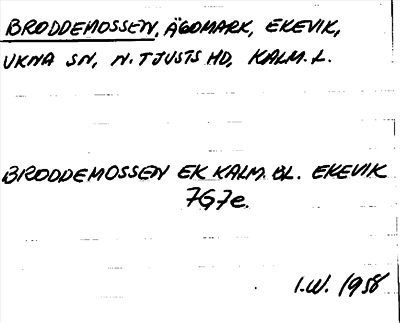 BRODDEMOSSEN, ÄGOMARK, EKEVIK,
UKNA SN, N. TJUSTS HD, KALM. L.
BRODDEMOSSEN EK KALM. BL. EKEVIK
7G7e.
I.W. 1958